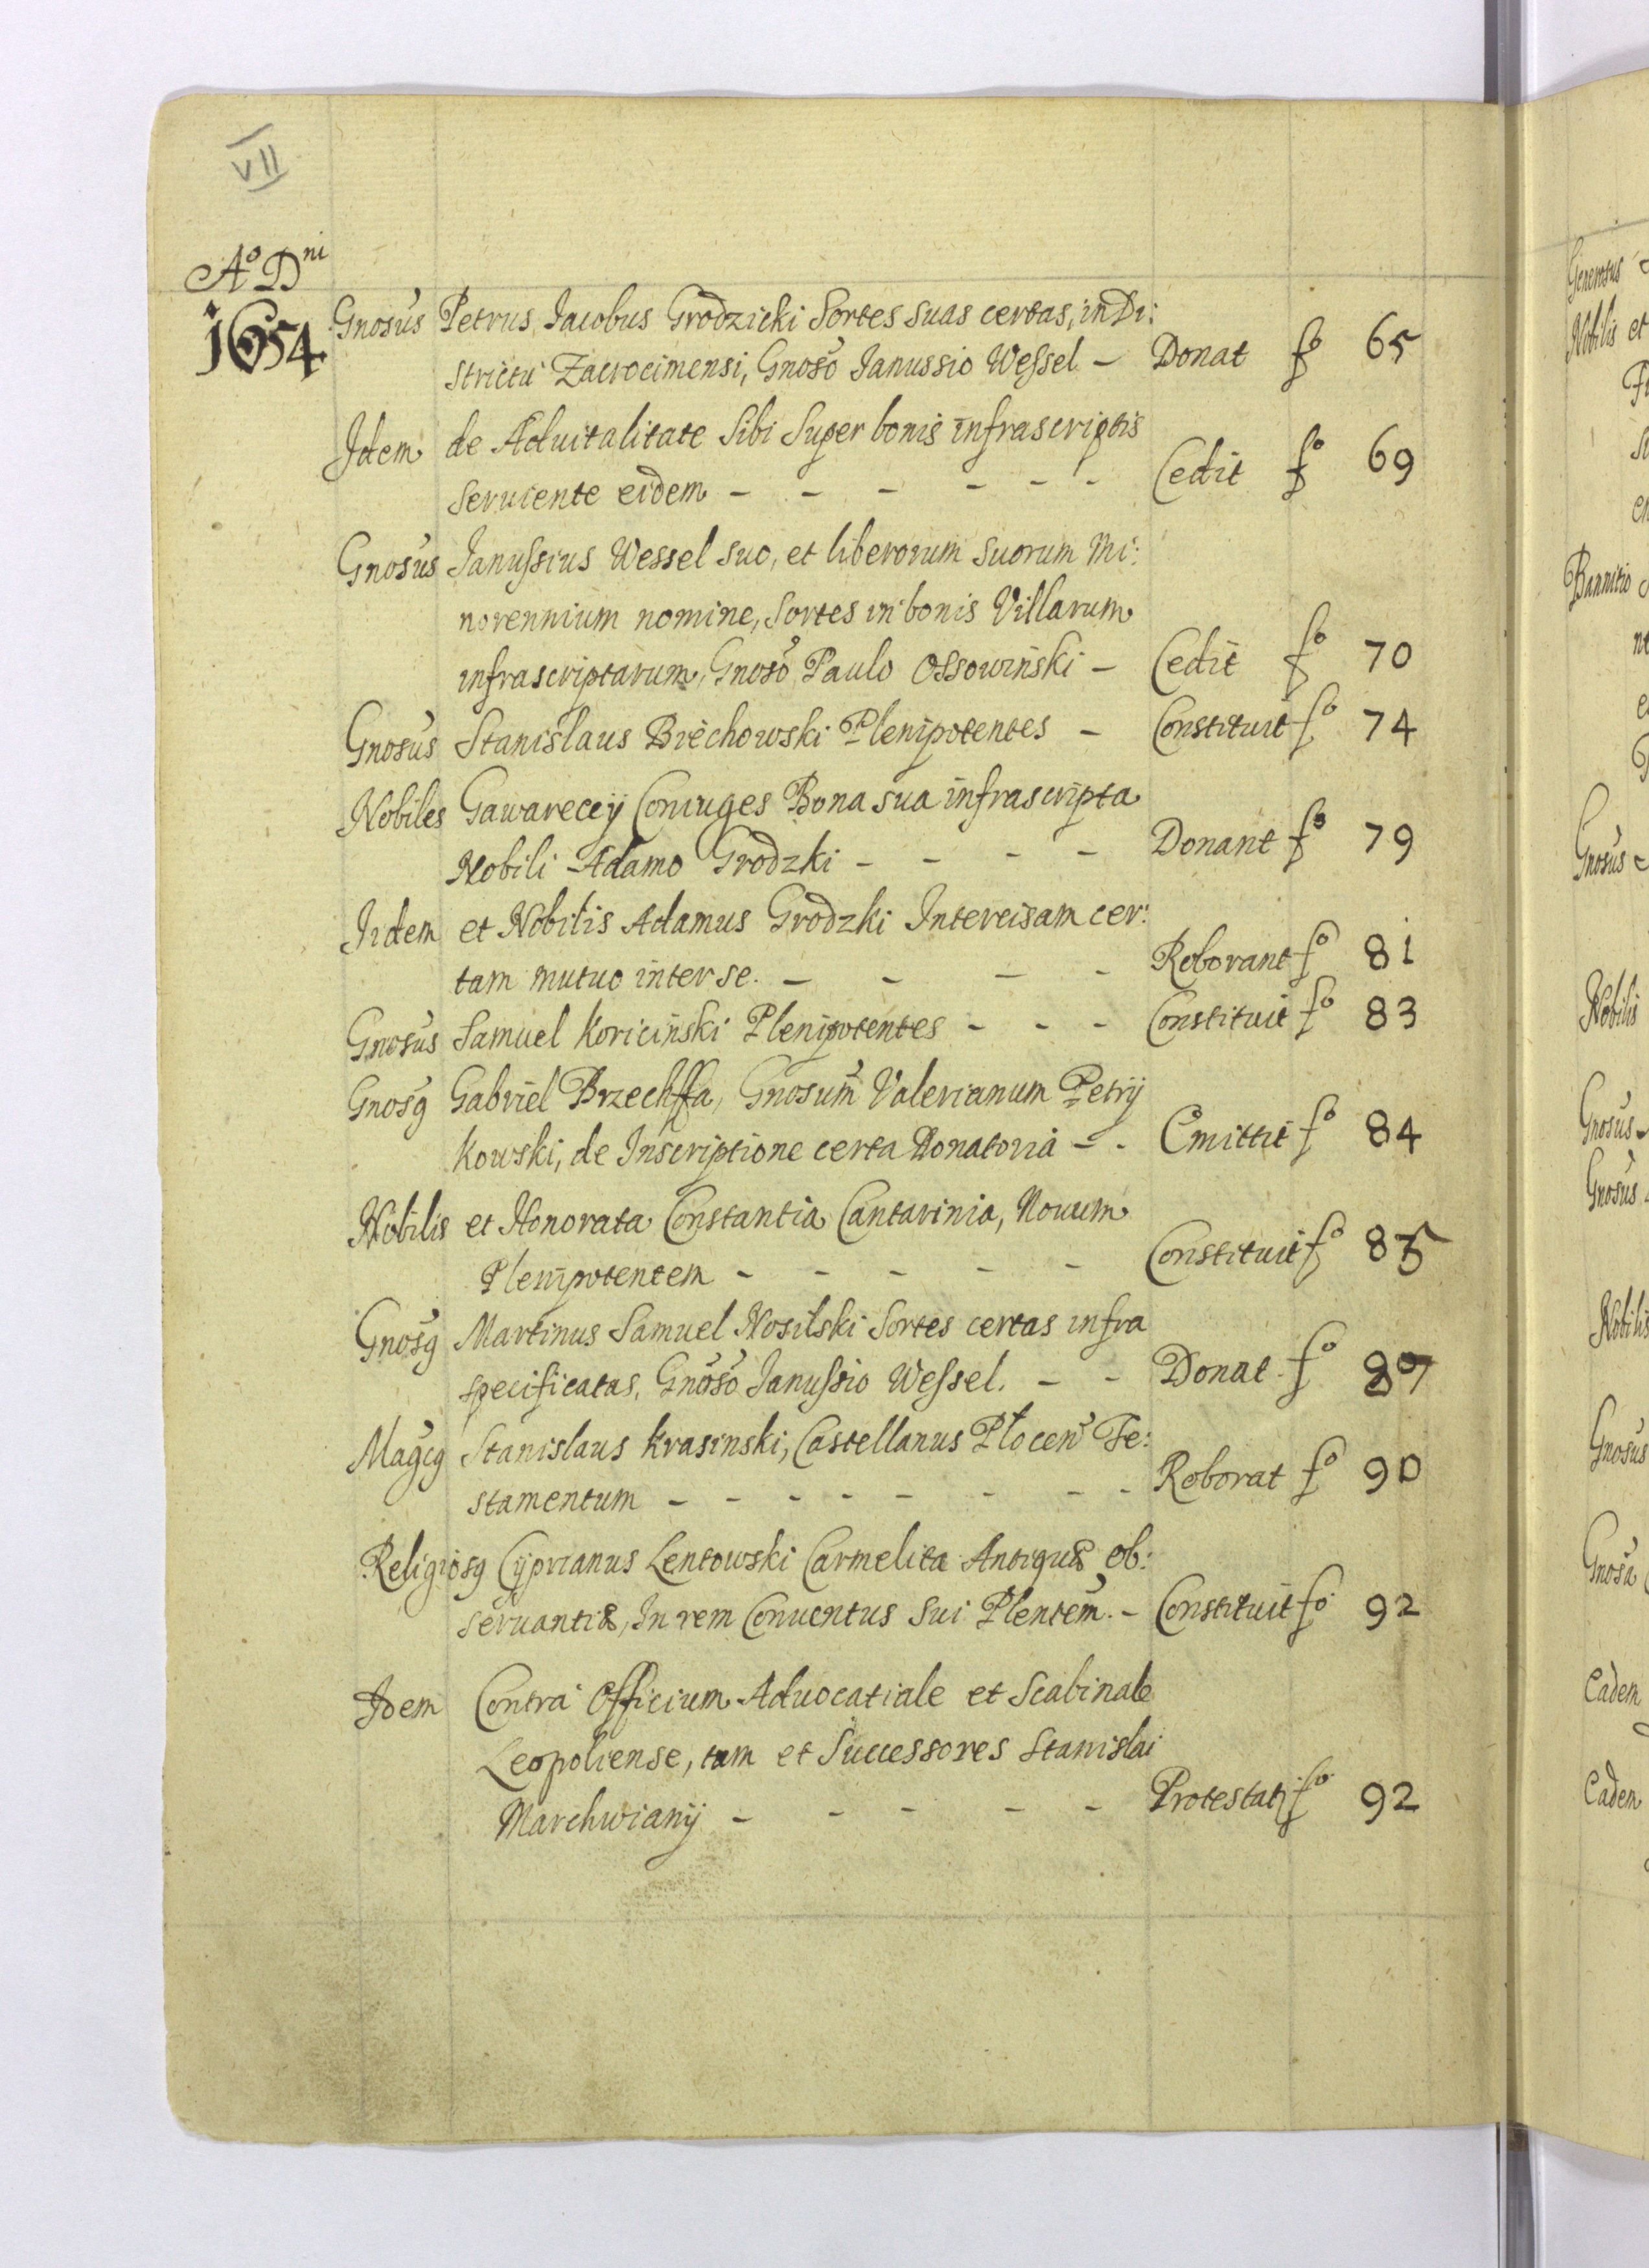 VII
Aº Dni
1654
Gnosus Petrus Iacobus Grodzicki Sortes suas certas, in Di:
strictu Zacrocimensi, Gnoso Ianussio Wessel – Donat fo 65
Idem de Aduitalitate Sibi Super bonis infrascriptis
seruiente eidem – – – – – – Cedit fo 69
Gnosus Ianussius Wessel suo, et liberorum suorum Mi:
norennium nomine, Sortes in bonis Villarum
infrascriptarum, Gnoso Paulo Ossowiński – Cedit fo 70
Gnosus Stanislaus Biechowski Plenipotentes – Constituit fo 74
Nobiles Gawareccy Coniuges Bona sua infrascripta
Nobili Adamo Grodzki – – – – Donant fo 79
Iidem et Nobilis Adamus Grodzki Intercisam cer:
tam mutuo inter se. – – – – Roborant fo 81
Gnosus Samuel Koriciński Plenipotentes – – – Constituit fo 83
Gnosg Gabriel Brzechffa, Gnosum Valerianum Petry
kowski, de Inscriptione certa Donatoria – – Cmittit fo 84
Nobilis et Honorata Constantia Cantarinia, Nouum
Plenipotentem – – – – – Constituit fo 85
Gnosg Martinus Samuel Nosilski Sortes certas infra
specificatas, Gnoso Ianussio Wessel. – – Donat fo 87
Magcg Stanislaus Krasinski, Castellanus Płocen Te:
stamentum – – – – – – – – Roborat fo 90
Religiosg Cyprianus Lentowski Carmelita Antiquæ ob:
seruantiæ, In rem Conuentus sui Plentem. – Constituit fo 92
Idem Contra Officium Aduocatiale et Scabinale
Leopoliense, tam et Successores Stanislai
Marchwiany – – – – – Protestatr fo 92
Generosus
Nobilis et
Bannitio
Gnosus
Nobilis
Gnosus
Gnosus
Nobilis
Gnosus
Gnosa
Eadem
Eadem